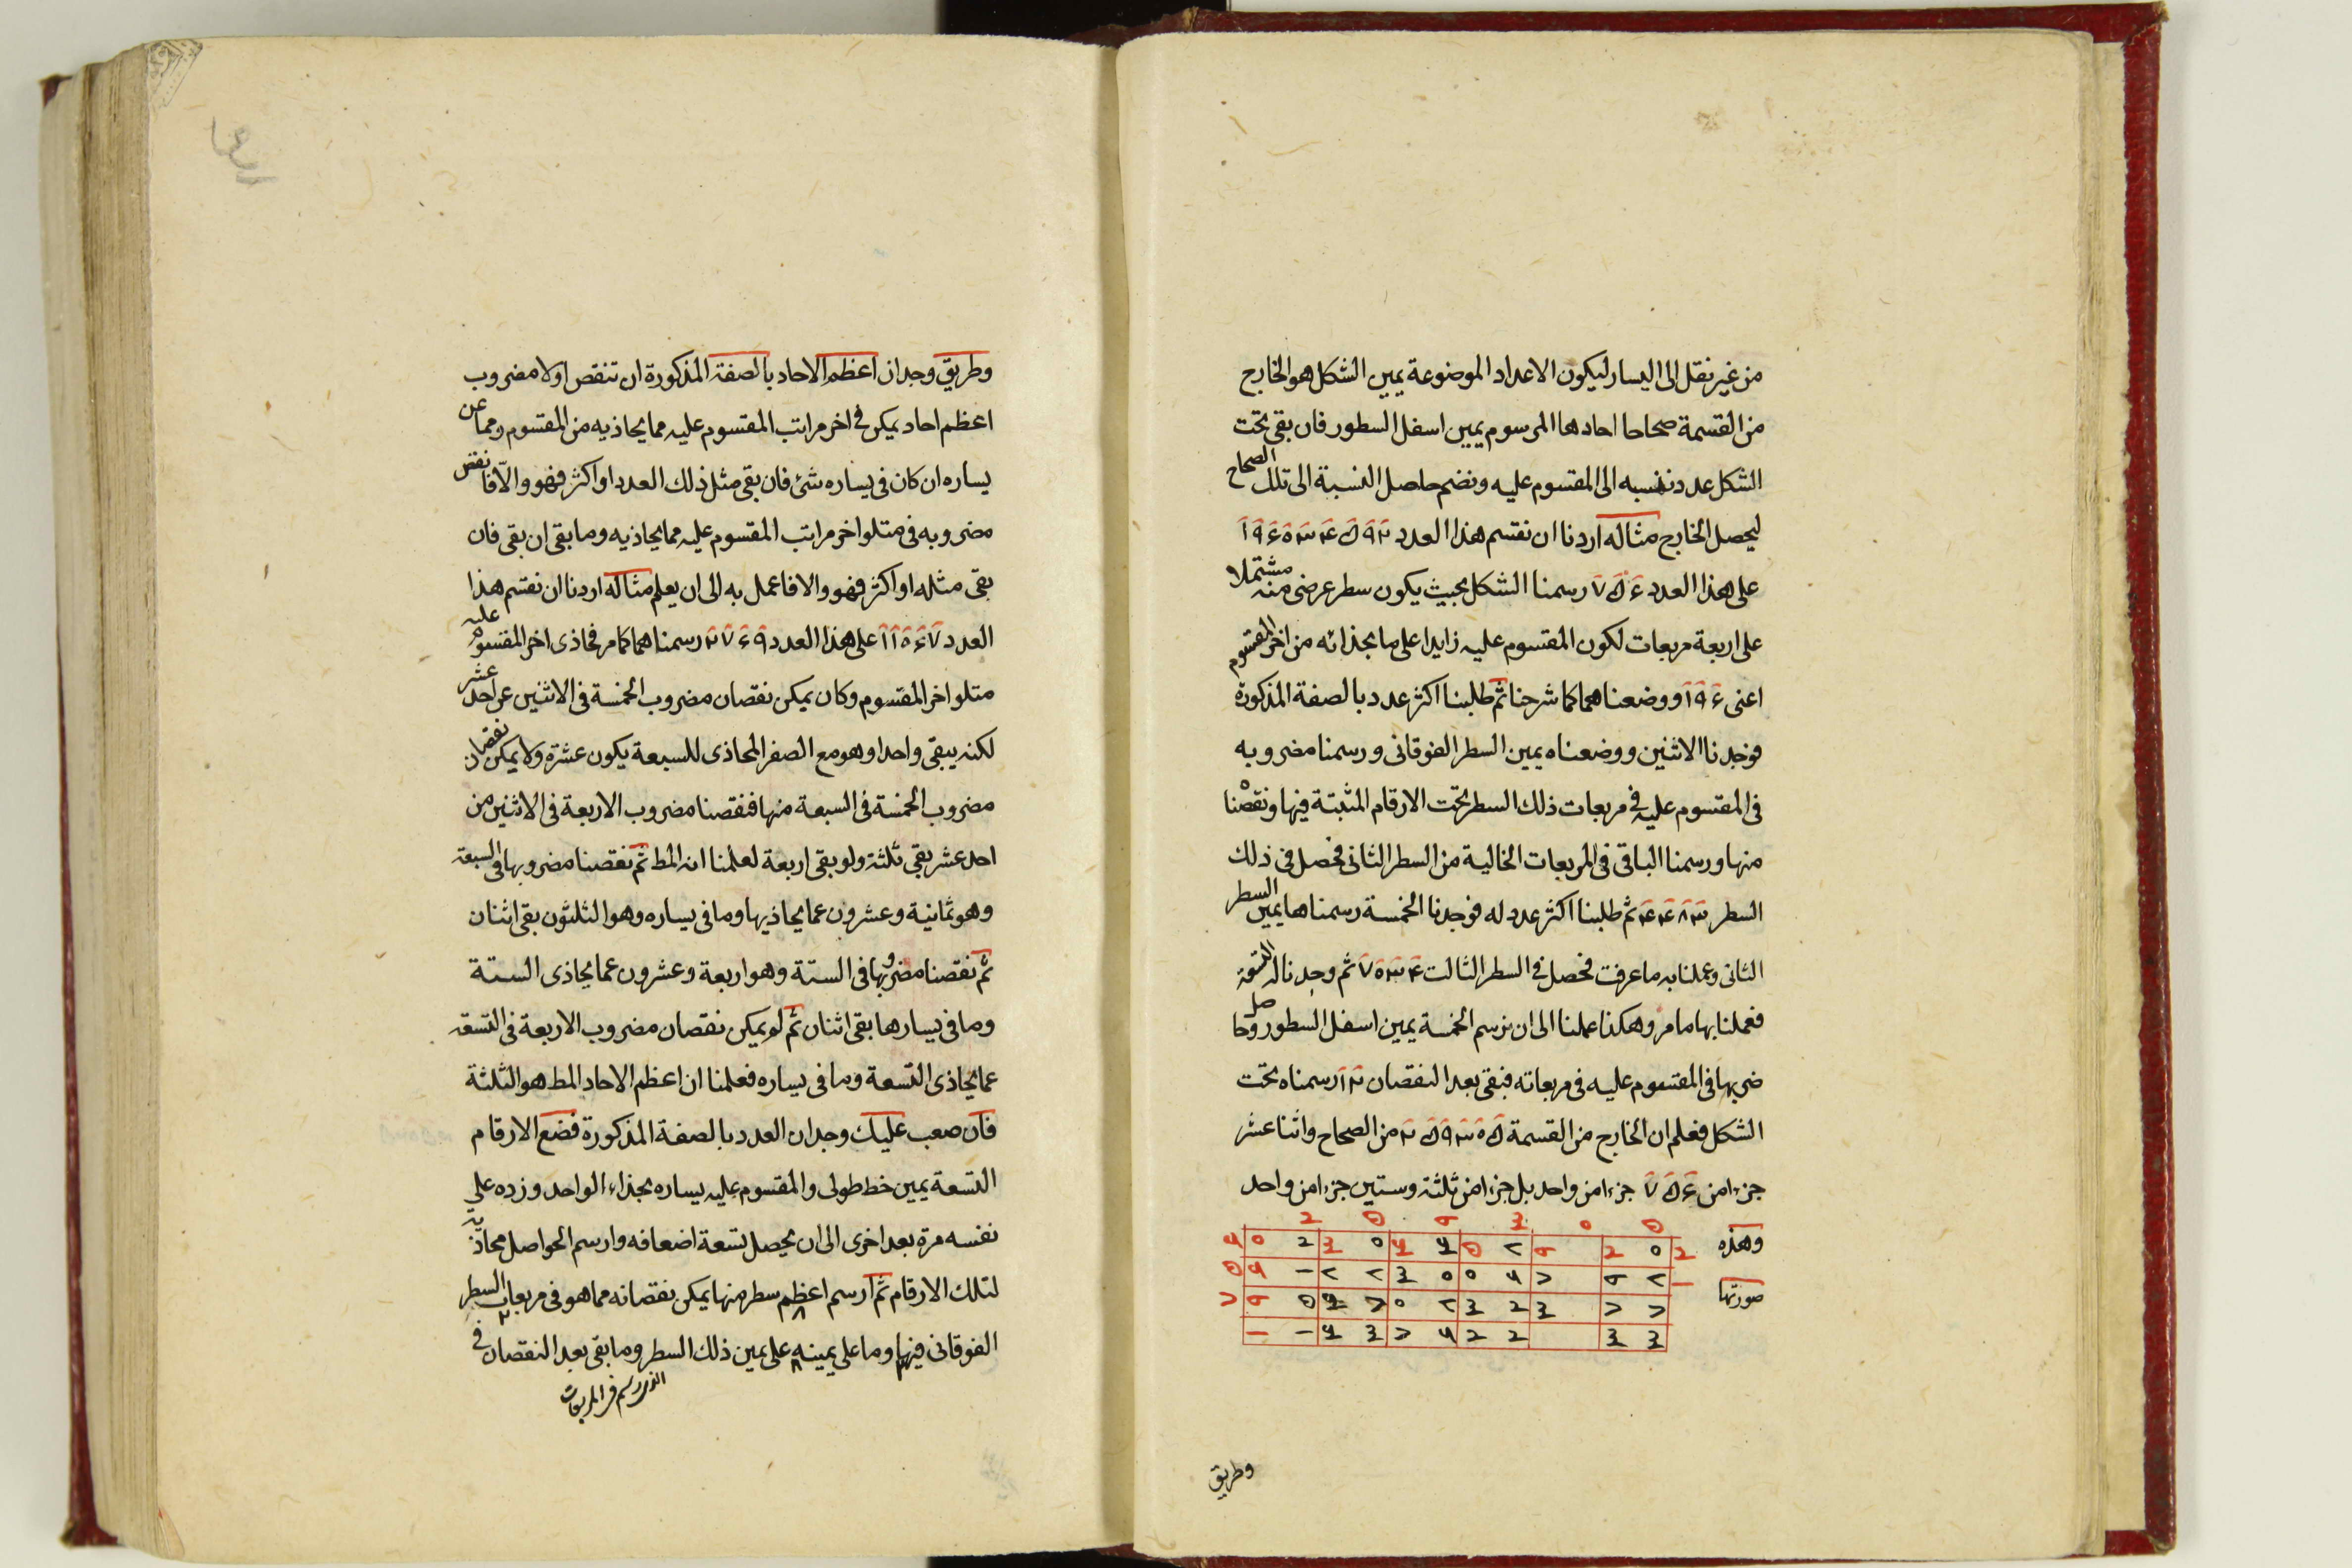 من غير نقل الى اليسار ليكون الاعداد الموضوعة يمين الشكل هو الخارج
من القسمة صحاحا احادها المرسوم يمين اسفل السطور فان بقى تحت
الشكل عدد ننسبه الى المقسوم عليه ونضم حاصل النسبة الى تلك الصحاح
ليحصل الخارج مثاله اردنا ان نقسم هذا العدد
على هذا العدد رسمنا الشكل بحيث يكون سطر عرضى منه مشتملا
على اربعة مربعات لكون المقسوم عليه زايدا على ما بحذائه من اخر المقسوم
اعنى ووضعناهما كما شرحنا ثم طلبنا اكثر عدد بالصفة المذكورة
فوجدنا الاثنين ووضعناه يمين السطر الفوقانى ورسمنا مضروبه
فى المقسوم عليه فى مربعات ذلك السطر تحت الارقام المثبتة فيها ونقصنا
منها ورسمنا الباقى فى المربعات الخالية من السطر الثانى فحصل فى ذلك
السطر ثم طلبنا اكثر عدد له فوجدنا الخمسة رسمناها يمين السطر
الثانى وعملنا به ما عرفت فحصل فى السطر الثالث ثم وجدنا له التسعة
فعملنا بها ما مر وهكذا عملنا الى ان نرسم الخمسة يمين اسفل السطور وحاصل
ضربها فى المقسوم عليه فى مربعاته فبقى بعد النقصان رسمناه تحت
الشكل فعلم ان الخارج من القسمة من الصحاح واثنا عشر
جزءا من جزءا من واحد بل جزءا من ثلثة وستين جزءا من واحد
وهذه
صورتها
وطريق
وطريق وجدان اعظم الاحاد بالصفة المذكورة ان تنقص اولا مضروب
اعظم احاد يمكن فى اخر مراتب المقسوم عليه مما يحاذيه من المقسوم ومما عن
يساره ان كان فى يساره شئ فان بقى مثل ذلك العدد او اكثر فهو والّا فانقص
مضروبه فى متلو اخر مراتب المقسوم عليه مما يحاذيه وما بقى ان بقى فان
بقى مثله او اكثر فهو والا فاعمل به الى ان يعلم مثاله اردنا ان نقسم هذا
العدد على هذا العدد رسمناهما كما مر فحاذى اخر المقسوم عليه
متلو اخر المقسوم وكان يمكن نقصان مضروب الخمسة فى الاثنين عن احد عشر
لكنه يبقى واحدا وهو مع الصفر المحاذى للسبعة يكون عشرة ولا يمكن نقصان
مضروب الخمسة فى السبعة منها فنقصنا مضروب الاربعة فى الاثنين من
احد عشر بقى ثلثة ولو بقى اربعة لعلمنا انه المط ثم نقصنا مضروبها فى السبعة
وهو ثمانية وعشرون عما يحاذيها وما فى يساره وهو الثلثون بقى اثنان
ثم نقصنا مضروبها فى الستة وهو اربعة وعشرون عما يحاذى الستة
وما فى يسارها بقى اثنان ثم لم يمكن نقصان مضروب الاربعة فى التسعة
عما يحاذى التسعة وما فى يساره فعلمنا ان اعظم الاحاد المط هو الثلثة
فان صعب عليك وجدان العدد بالصفة المذكورة فضع الارقام
التسعة يمين خط طولى والمقسوم عليه يساره بحذاء الواحد وزده على
نفسه مرة بعد اخرى الى ان يحصل تسعة اضعافه وارسم الحواصل محاذية
لتلك الارقام ثم ارسم اعظم سطر منها يمكن نقصانه مما هو فى مربعات السطر
الفوقانى فيها وما على يمينه على يمين ذلك السطر وما بقى بعد النقصان فى